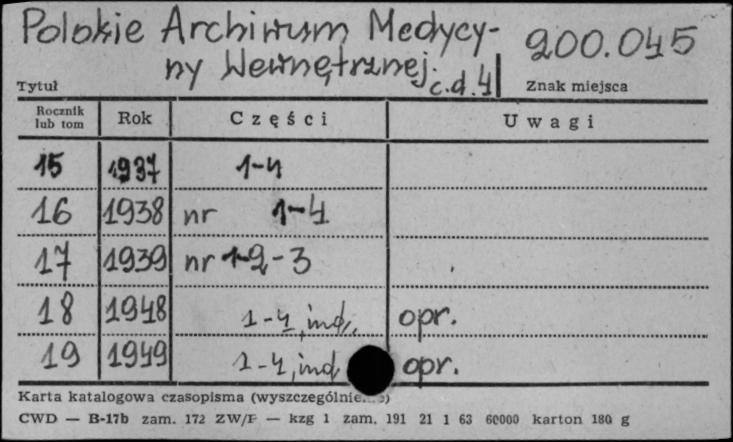 Polskie Archiwum Medycy-
ny Wewnętrznej c.d. 4 200.045
Tytuł Znak miejsca
Rocznik lub tom Rok Części Uwagi
15 1937 1-4
16 1938 nr 1-4
17 1939 nr 2-3
18 1948 1-4, ind. opr.
19 1949 1-4, ind. opr.
Karta katalogowa czasopisma
CWD — B-17b zam. 172 ZW/F — kzg 1 zam. 191 21 1 63 60000 karton 180 g